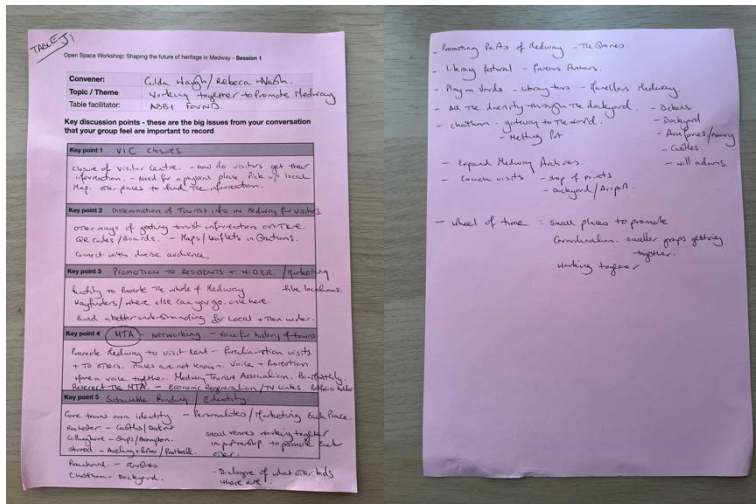 TABLE J1
Open Space Workshop: Shaping the future of heritage in Medway - Session 1
Convener: Gilda Haigh/Rebeca Nash.
Topic / Theme Working together to Promote Medway
Table facilitator: ABBY
Key discussion points - these are the big issues from your conversation
that your group feel are important to record
Key point 1 VIC Closures
Closure of Visitor Centre. - How do visitors get their
information. - Need for a physical place Pick-up local
Map. other places to find the information.
Key point 2 Dissemination of Tourist info in Medway for visitors
other ways of getting tourist information out there.
QR codes/Boards. - Maps/leaflets in
Connect with diverse audience
Key point 3 PROMOTION TO RESIDENTS + WIDER / Marketing
the locations.
to Promote the whole of Medway
Wayfinders/where else can you go, one here.
Build a better understanding for Local + then wider.
Key point 4 MTA - NETWORKING - Voice for history of towns
Promote Medway to visit Kent - Familiarisation visits
+ to others. Places are not known. Voice + Promotion
Have a voice together. Medway Tourist Association. Bi-Monthly.
the MTA. - Economic Regeneration/TV links. Portfolio holder
Key point 5 Sustainable Funding / Identity.
towns own identity. - Personalities/Marketing Each Place.
Rochester - Castles/Dickens
Gillingham - Ships/Brompton.
small venues working together
in partnership to promote each
other.
Strood - /River/Football.
Rainham -
Chatham - Dockyard.
- Dialogue of what other bids
there are
- Promoting Parts of Medway - The
- Library festival - Famous Authors.
- Play on Words - Library tours - Medway.
- All the diversity through the dockyard.
- Chatham - gateway to the World.
- Melting Pot
- Dickens
- Dockyard
- Armed Forces/Navy
- Castles
- Will Adams.
- Expand Medway Archives.
- Coach visits - drop off points
- dockyard/Airport.
- Wheel of time : small places to promote
Coordination. smaller groups getting
together.
Working together